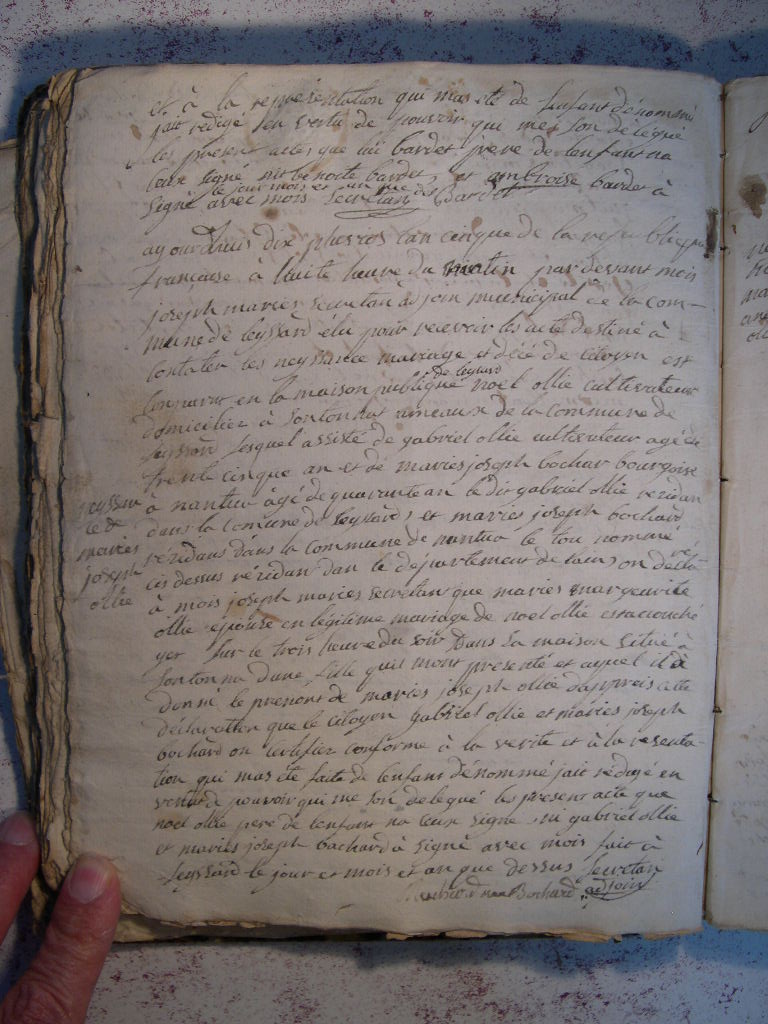 et à la représentation qui mas été de lenfant dénommé
jait redigé en vertu de pouvoir qui me son délégué
les présent actes que bardet pere de lenfant na
seux signé ni benoite bardet et ambroise bardet à
le jour mois et an que des
signé avec mois Secretan Bardet
aujourdhuis dix pluvios lan cinque de la republique
francaise à huite heure du matin pardevant mois
joseph maries secretan adjoin municipal de la com-
mune de leyssard élu pour recevoir les acte destiné à
contater les neyssance mariage et décé de citoyen est
de leyssard
comparu en la maison publique noel ollie cultivateur
domicilier à sontonna ameaux de la commune de
leyssard lesquel assisté de gabriel ollie cultivateur agé de
trente cinque an et de maries joseph bochar bourgoise
à nantua àgé de quarante an le dit gabriel ollie rezidan
dans la comune de leyssard et maries joseph bochard
rézidans dans la commune de nantua le tou nommé
cis dessus rézidan dan le département de lain on déclaré
à mois joseph maries secretan que maries margeurite
ollie épouse en légitime mariage de noel ollie est acouché
yer sur le trois heure du soir dans sa maison situé à
sontonna dune fille quil mont presenté et auquel il à
donné le prenont de maries joseph ollie dappreis cette
déclaration que le citoyen gabriel ollie et maries joseph
bochard on certifier conforme à la verité et à la resenta-
tion qui mas été faite de lenfant dénommé jait rédigé en
vertu de pouvoir qui me son delegué les present acte que
noel ollie pere de lenfant na seux signé ni gabriel ollie
et maries joseph bochard à signé avec mois fait à
leyssard le jour et mois et an que dessus Secretan
Bochard adjoin
neyssan
ce de
maries
joseph
ollie